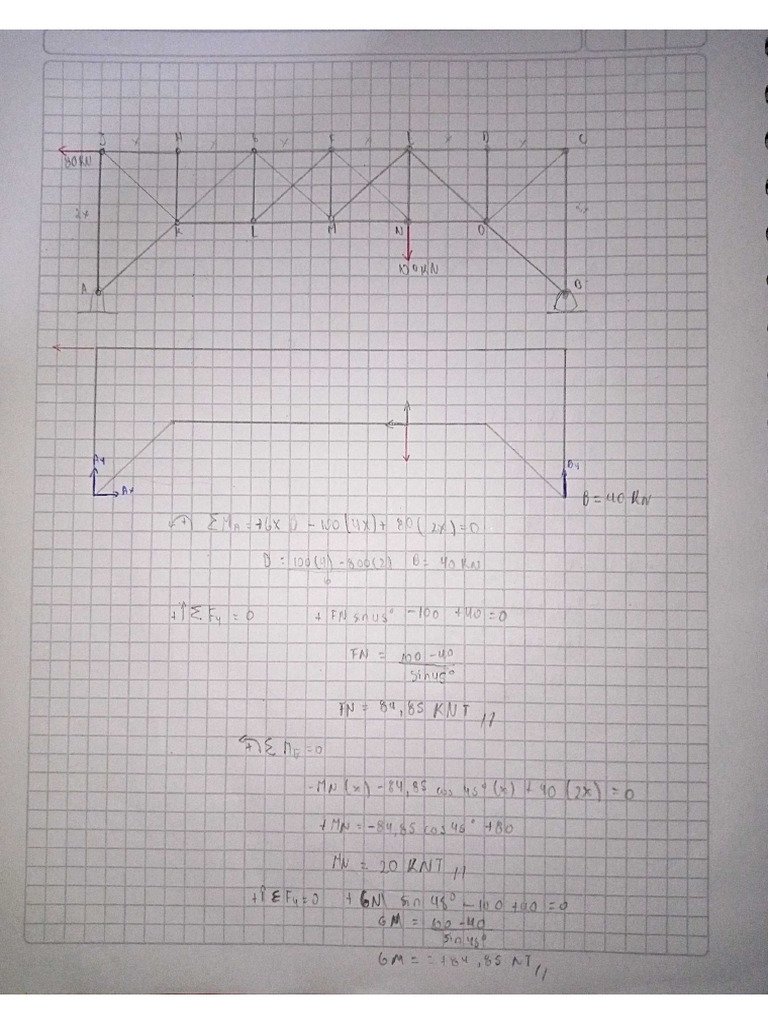 J x H x G x F x E x D x C
80KN
2x
K L M N O
100KN
A B
Ay
Ax
By
B = 40 KN
+ΣMA = +6x ) - 100(4x) + 80(2x) = 0
B = 100(4) - 800(2) B = 40 KN
6
+↑ΣFy = 0 + FN sin45° - 100 + 40 = 0
FN = 100 - 40
sin45°
FN = 84,85 KNT //
+ΣME = 0
- MN (x) - 84,85 cos 45° (x) + 40 (2x) = 0
+ MN = - 84,85 cos 45° + 80
MN = 20 KNT //
+↑ΣFy = 0 + GM sin 45° - 100 + 40 = 0
GM = 100 - 40
sin45°
GM = = +84,85 NT //